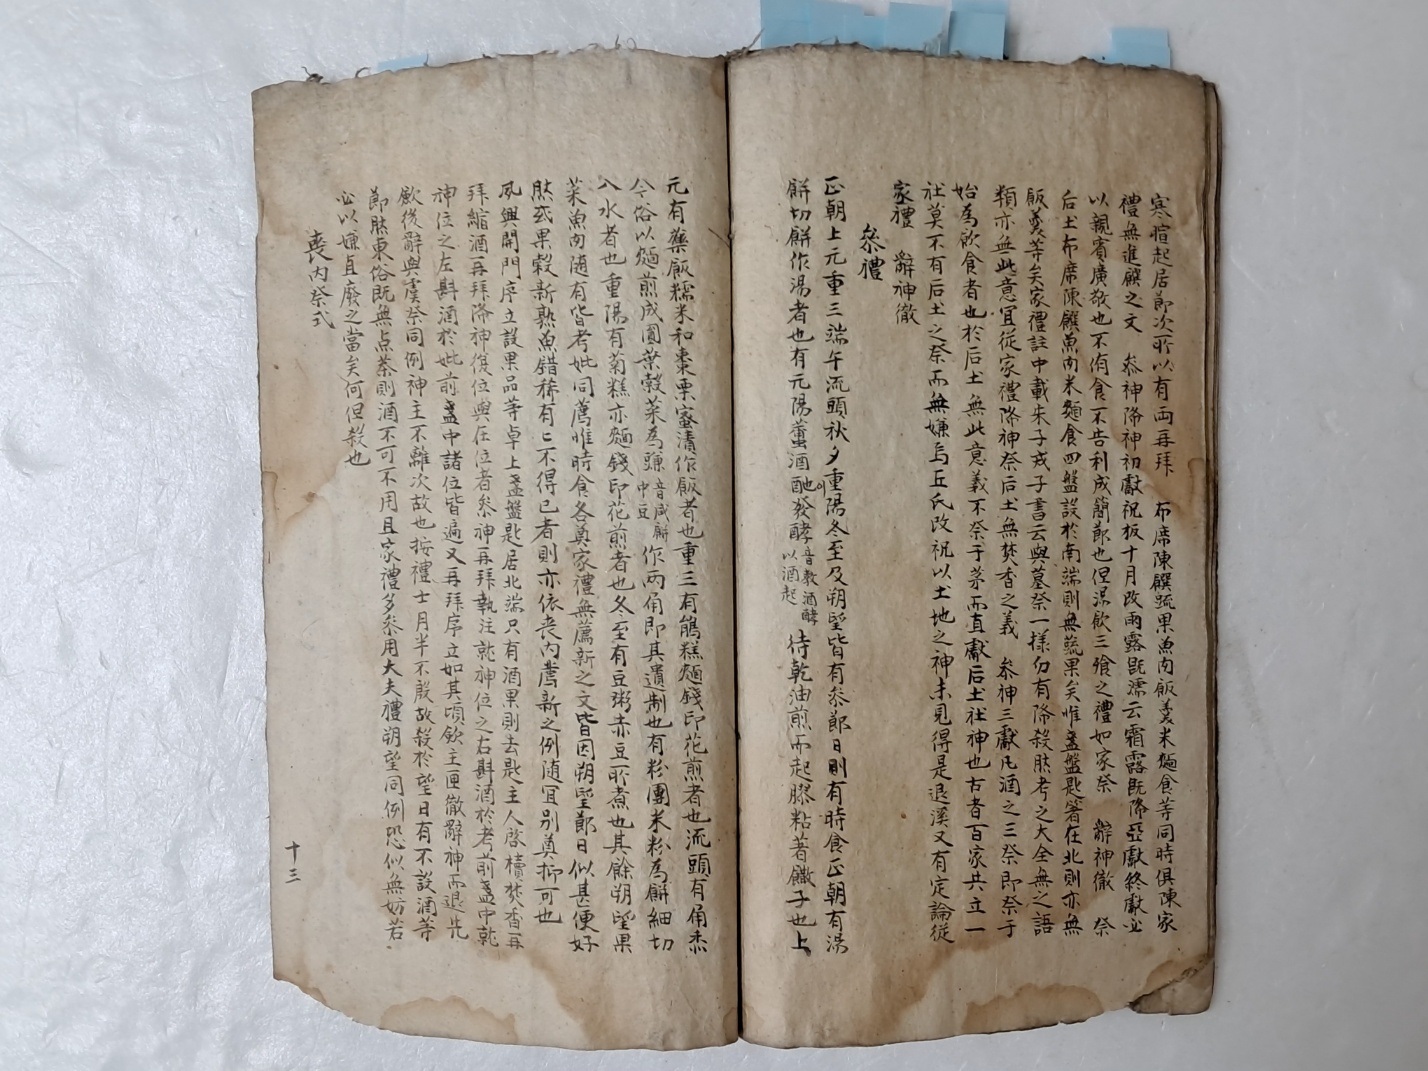 寒暄起居節次所以有兩再拜 布席陳饌蔬果魚肉飯羹米麵食等同時俱陳家
禮無進饌之文 叅神降神初獻祝板十月改雨露旣濡云霜露旣降亞獻終獻必
以親賓廣敬也不侑食不告利成簡節也但湯飮三飱之禮如家祭 辭神徹 祭
后土布席陳饌魚肉米麵食四盤設於南端則無蔬果矣惟盞盤匙箸在北則亦無
飯羹等矣家禮註中載朱子戒子書云與墓祭一樣仍有降殺然考之大全無之語
類亦無此意宜從家禮降神祭后土無焚香之義 叅神三獻凡酒之三祭即祭于
始爲飮食者也於后土無此意義不祭于茅而直獻后土社神也古者百家共立一
社莫不有后土之祭而無嫌焉丘氏改祝以土地之神未見得是退溪又有定論從
家禮 辭神徹
叅禮
正朝上元重三端午流頭秋夕重陽冬至及朔望皆有叅節日則有時食正朝有湯
餠切餠作湯者也有元陽薑酒酏發酵音敎酒酵以酒起待乾油煎而起膠粘著䊵子也上
元有藥飯糯米和棗栗蜜漬作飯者也重三有鵲糕麵錢印花煎者也流頭有角黍
今俗以麵煎成圓葉穀菜爲䭑音咸餠中豆作兩角即其遺制也有粉團米粉爲餠細切
入水者也重陽有菊糕亦麵錢印花煎者也冬至有豆粥赤豆所煮也其餘朔望果
菜魚肉隨有皆考妣同薦惟時食各奠家禮無薦新之文皆因朔望節日似甚便好
然或果穀新熟魚錯稀有亡不得已者則亦依喪內薦新之例隨宜別奠抑可也
夙興開門序立設果品等卓上盞盤匙居北端只有酒果則去匙主人啓櫝焚香再
拜縮酒再拜降神復位與在位者叅神再拜執注就神位之右斟酒於考前盞中就
神位之左斟酒於妣前盞中諸位皆遍又再拜序立如其頃飮主匣徹辭神而退先
飮後辭與虞祭同例神主不離次故也按禮士月半不殷故殺於望日有不設酒等
節然東俗旣無点茶則酒不可不用且家禮多叅用大夫禮朔望同例恐似無妨若
必以嫌直廢之當矣何但殺也
喪內祭式
十三